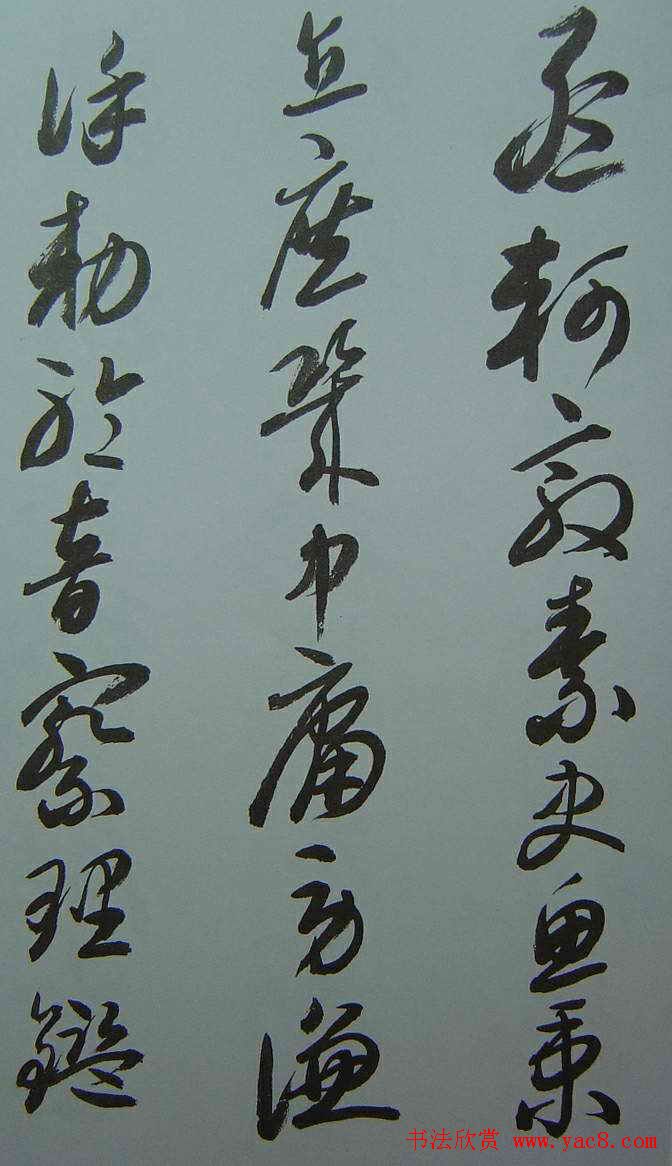 孟軻敦素史魚秉
直庶幾中庸勞謙
謹勅聆音察理鑑
书法欣赏 www.yac8.com